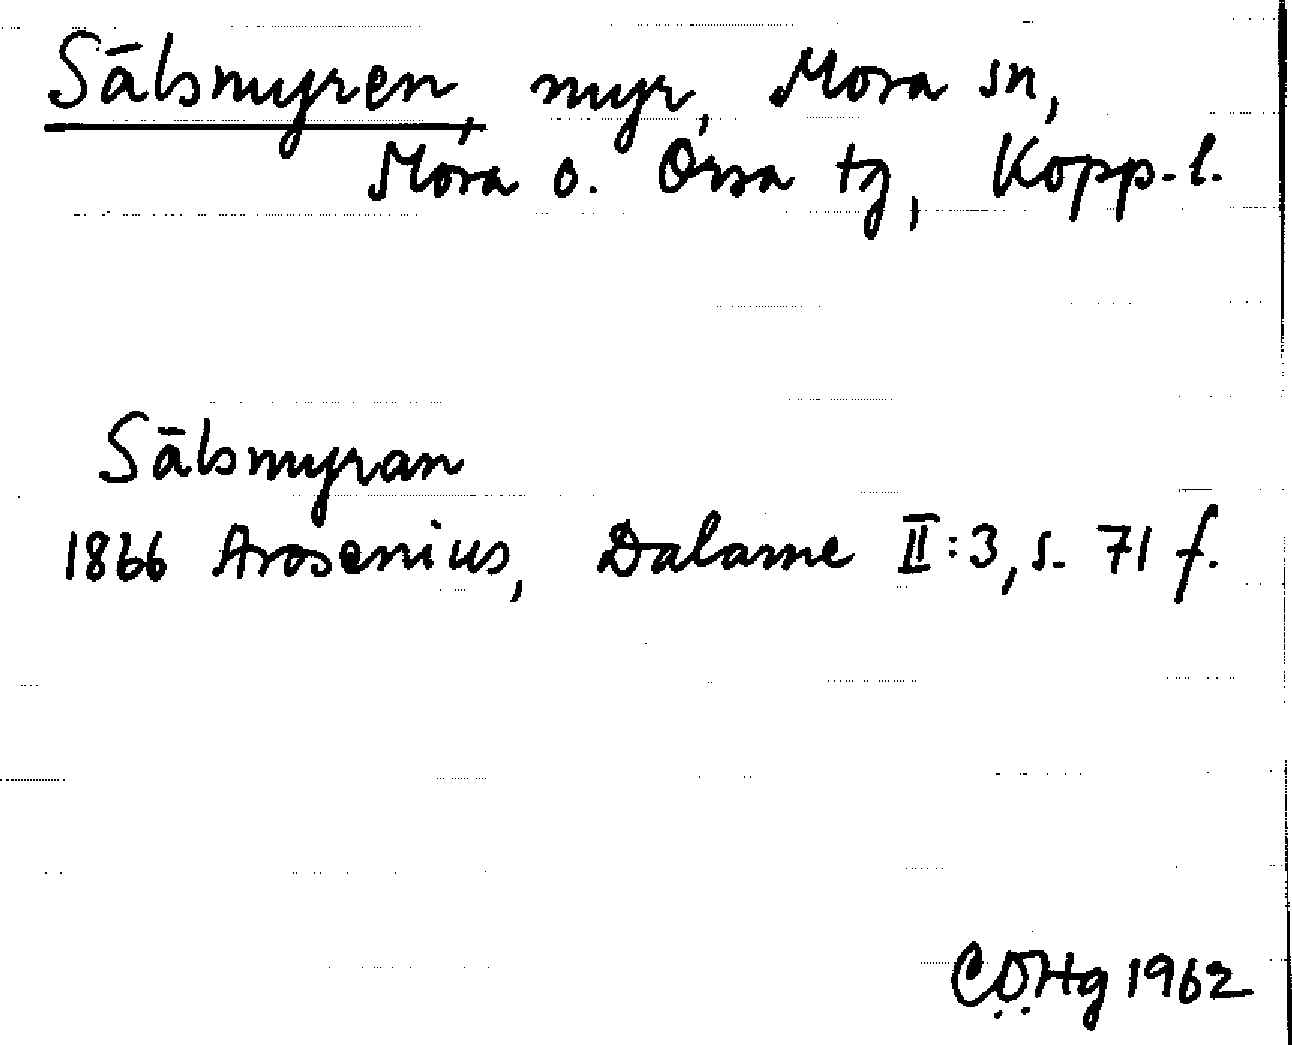 Sälsmyren, myr, Mora sn,
Mora o. Orsa tg, Kopp-l.
Sälsmyran
1866 Arosenius, Dalarne II:3, s. 71 f.
CÖHg 1962